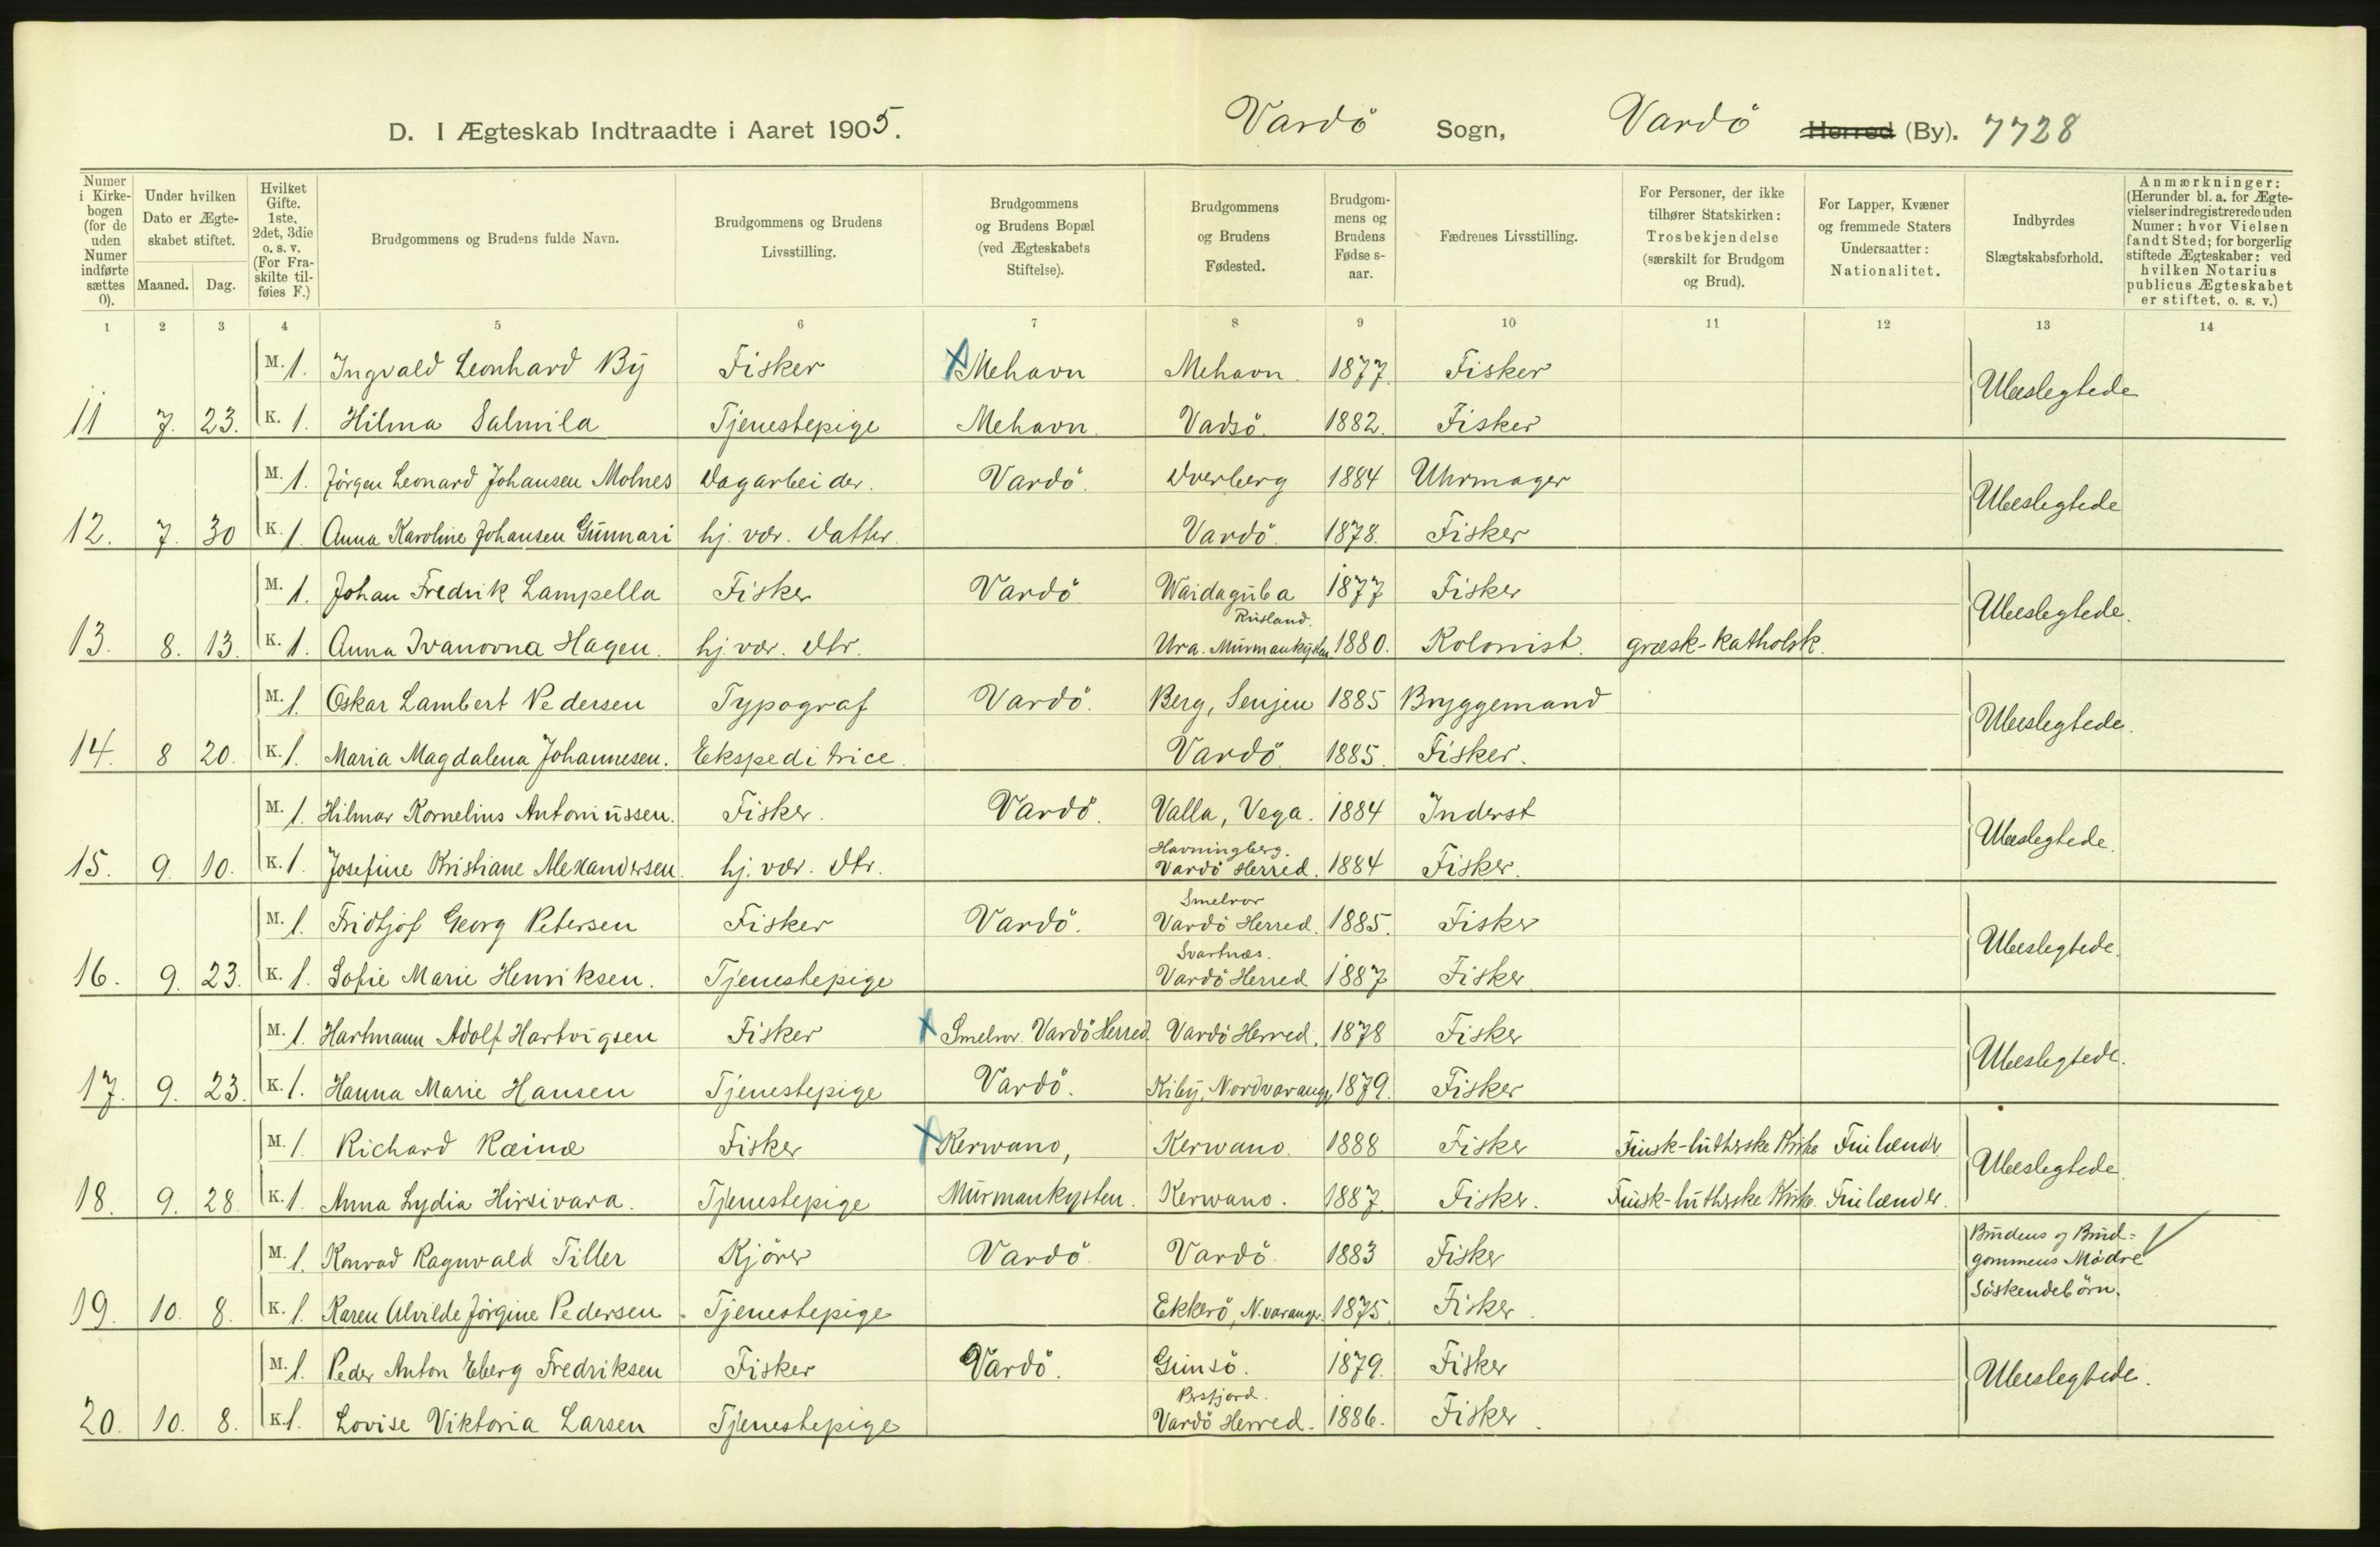 D. I Ægteskab Indtraadte i Aaret 1905. Vardö Sogn, Vardö Herred (By). 7728
Numer i Kirkebogen (for de uden Numer indførte sættes 0).
Under hvilken Dato er Ægteskabet stiftet.
Maaned. Dag.
Hvilket Gifte. 1ste, 2det, 3die o. s. v. (For Fraskilte tilføies F.)
Brudgommens og Brudens fulde Navn.
Brudgommens og Brudens Livsstilling.
Brudgommens og Brudens Bopæl (ved Ægteskabets Stiftelse).
Brudgommens og Brudens Fødested.
Brudgommens og Brudens Fødselsaar.
Fædrenes Livsstilling.
For Personer, der ikke tilhører Statskirken: Trosbekjendelse (særskilt for Brudgom og Brud).
For Lapper, Kvæner og fremmede Staters Undersaatter: Nationalitet.
Indbyrdes Slægtskabsforhold.
Anmærkninger: (Herunder bl. a. for Ægtevielser indregistrerede uden Numer: hvor Vielsen fandt Sted; for borgerlig stiftede Ægteskaber: ved hvilken Notarius publicus Ægteskabet er stiftet, o. s. v.)
1 2 3 4 5 6 7 8 9 10 11 12 13 14
M. 1. Ingvald Leonhard By Fisker Mehavn Mehavn. 1877. Fisker Ubeslegtede
11 7. 23. K. 1. Hilma Salmila Tjenestepige Mehavn. Vadsö. 1882. Fisker
M. 1. Jörgen Leonard Johansen Molnes Dagarbeider. Vardö. Dverberg 1884 Uhrmager Ubeslegtede
12. 7. 30 K. 1. Anna Karoline Johansen Gunnari hj. vær. Datter. Vardö. 1878. Fisker
M. 1. Johan Fredrik Lampella Fisker Vardö Waidaguba 1877 Fisker Ubeslegtede.
Rusland.
13. 8. 13. K. 1. Anna Ivanovna Hagen. hj. vær. Dtr. Ura. Murmankysten 1880. Kolonist. græsk-katholsk.
M. 1. Oskar Lambert Pedersen Typograf Vardö. Berg, Senjen 1885 Bryggemand Ubeslegtede.
14. 8 20. K. 1. Maria Magdalena Johannesen. Ekspeditrice. Vardö. 1885. Fisker.
M. 1. Hilmar Kornelius Antoniussen. Fisker. Vardö. Valla, Vega. 1884 Inderst Ubeslegtede.
Havningberg.
15. 9. 10. K. 1. Josefine Kristiane Alexandersen. hj. vær. Dtr. Vardö Herred. 1884 Fisker.
Smelror
M. 1. Fridtjof Georg Petersen Fisker Vardö. Vardö Herred. 1885. Fisker Ubeslegtede.
Svartnæs.
16. 9. 23. K. 1. Sofie Marie Henriksen. Tjenestepige Vardö Herred 1887 Fisker
M. 1. Hartmann Adolf Hartvigsen Fisker Smelror Vardö Herred. Vardö Herred. 1878 Fisker Ubeslegtede.
17. 9. 23. K. 1. Hanna Marie Hansen Tjenestepige Vardö. Kiby, Nordvarang. 1879. Fisker
M. 1. Richard Kæinæ Fisker Kerwano, Kerwano. 1888 Fisker Finsk-lutherske Kirke Finlænder Ubeslegtede.
18. 9. 28. K. 1. Anna Lydia Hirsivara. Tjenestepige Murmankysten. Kerwano. 1887. Fisker. Finsk-lutherske Kirke. Finlænder.
M. 1. Konrad Ragnvald Tiller Kjörer Vardö. Vardö. 1883 Fisker Brudens og Brud-
gommens Mödre
19. 10. 8. K. 1. Karen Alvilde Jörgine Pedersen. Tjenestepige Ekkerö, N. varanger. 1875. Fisker. Söskendebörn.
M. 1. Peder Anton Eberg Fredriksen Fisker Vardö. Gimsö. 1879. Fisker Ubeslegtede.
Persfjord.
20. 10. 8. K. 1. Lovise Viktoria Larsen Tjenestepige Vardö Herred. 1886. Fisker.